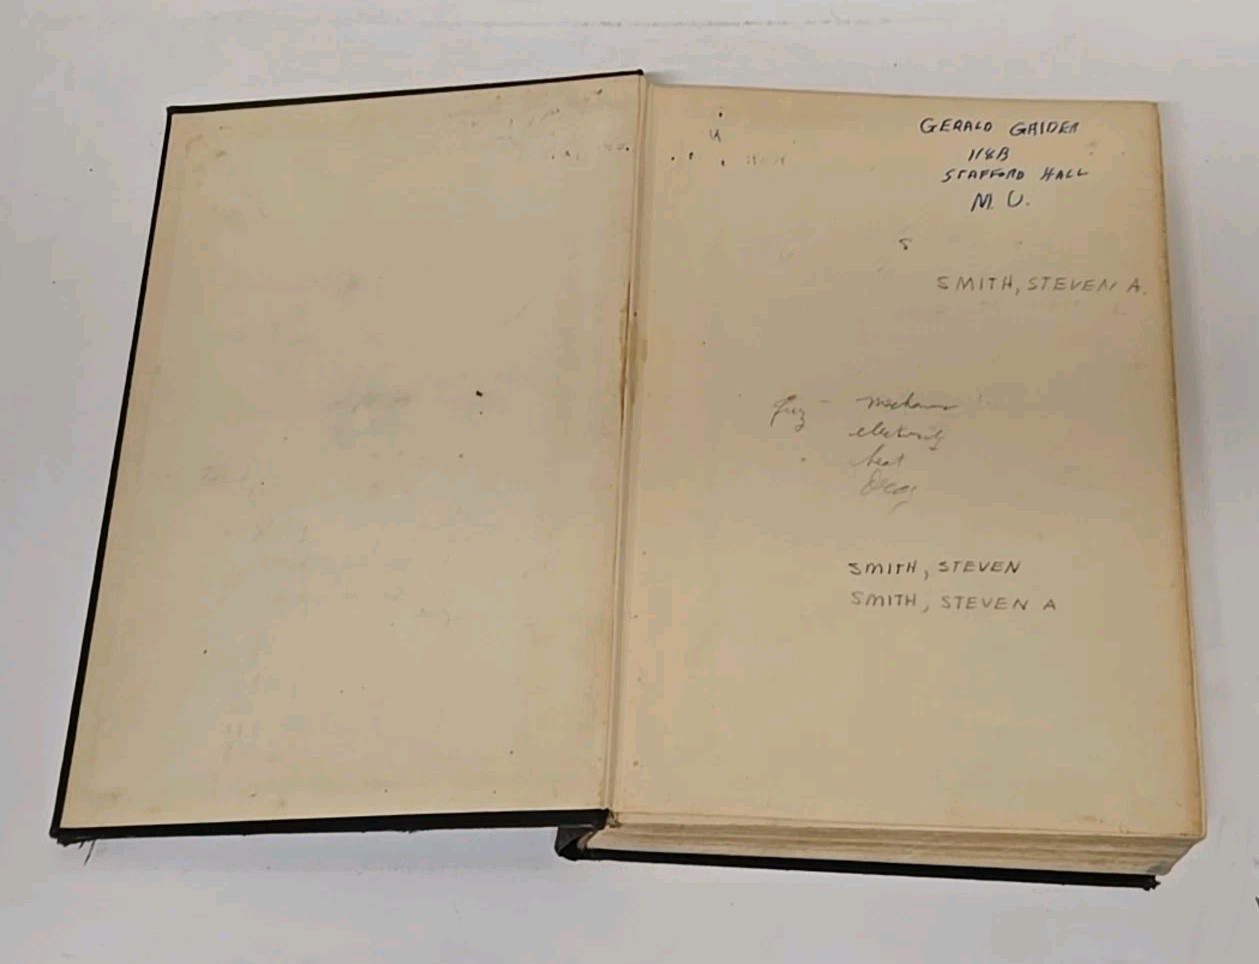 GERALD GRIDER
118B
STAFFORD HALL
M. U.
S
SMITH, STEVEN A.
mechanics
electricity
heat
SMITH, STEVEN
SMITH, STEVEN A